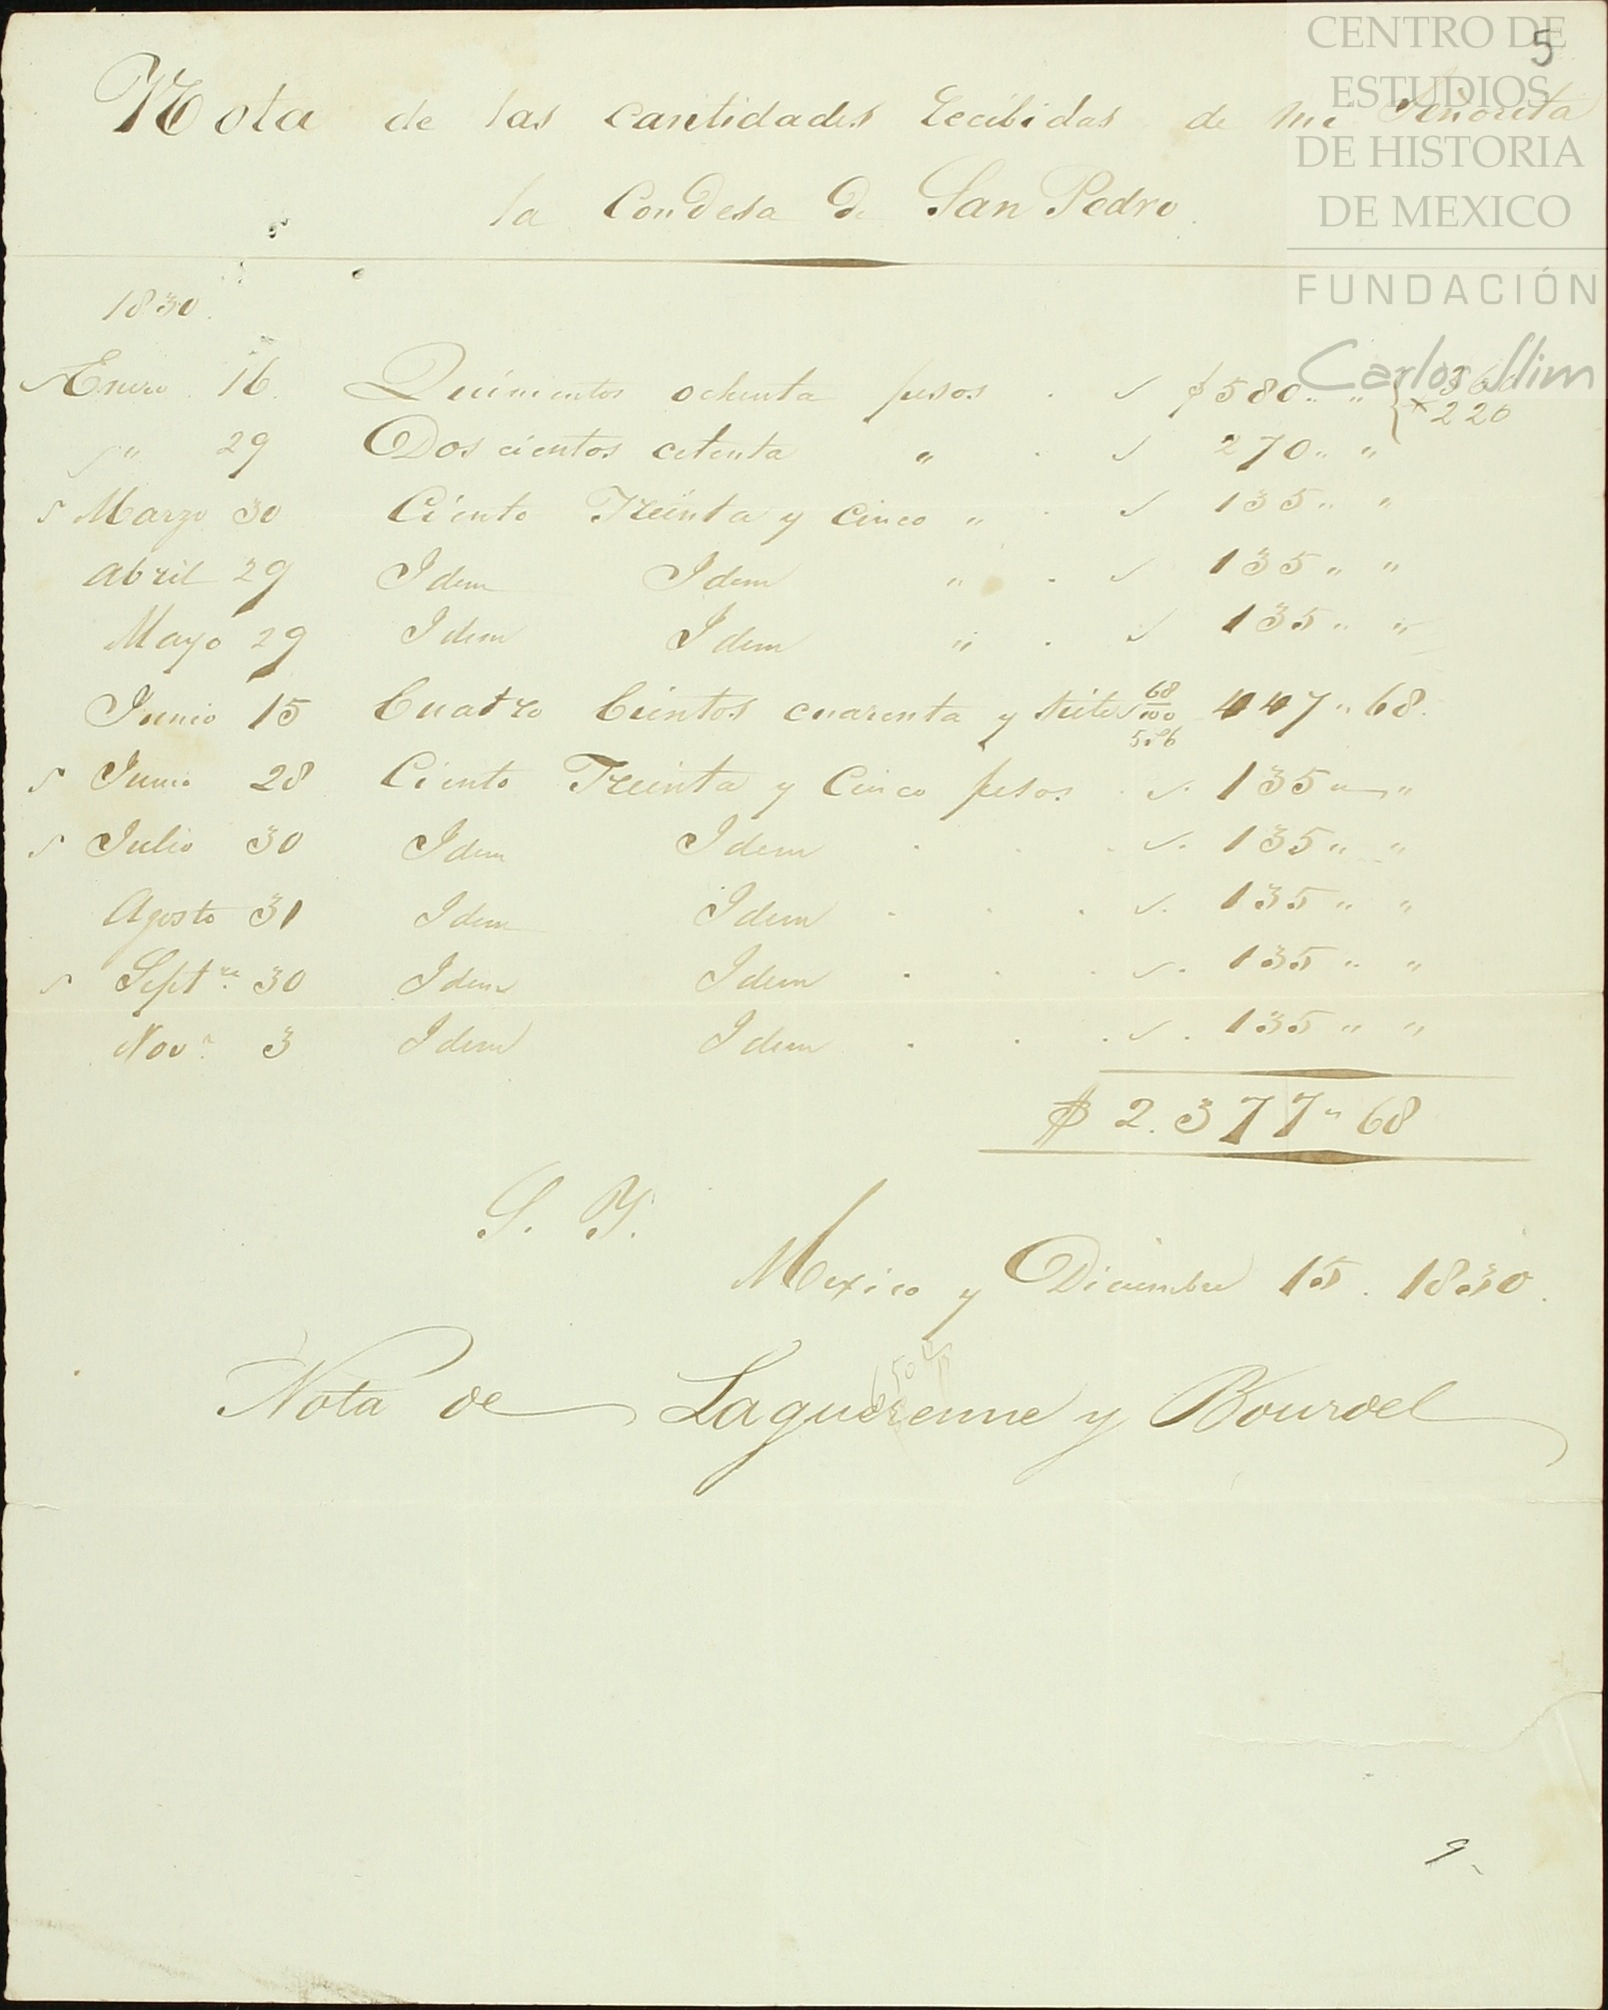 5
CENTRO DE
ESTUDIOS
DE HISTORIA
DE MEXICO
FUNDACIÓN
Carlos Slim
Nota de las cantidades Recibidas de mi Señorita
la Condesa de San Pedro.
1830.
Enero 16. Quinientos ochenta pesos . $ 580 " " { 360
* 220
" 29 Dos cientos cetenta " . 270 " "
Marzo 30 Ciento Treinta y cinco " . 135 " "
Abril 29 Idem Idem " . 135 " "
Mayo 29 Idem Idem " . 135 " "
Junio 15 Cuatro Cientos cuarenta y siete 68/100 447 " 68.
Junio 28 Ciento Treinta y Cinco pesos . 135 " "
Julio 30 Idem Idem . . . 135 " "
Agosto 31 Idem Idem . . . 135 " "
Septre. 30 Idem Idem . . . 135 " "
Nove. 3 Idem Idem . . . 135 " "
$ 2.377 " 68
S. Y.
Mexico y Diciembre 15. 1830.
Nota de Laguerenne y Bourdel
9